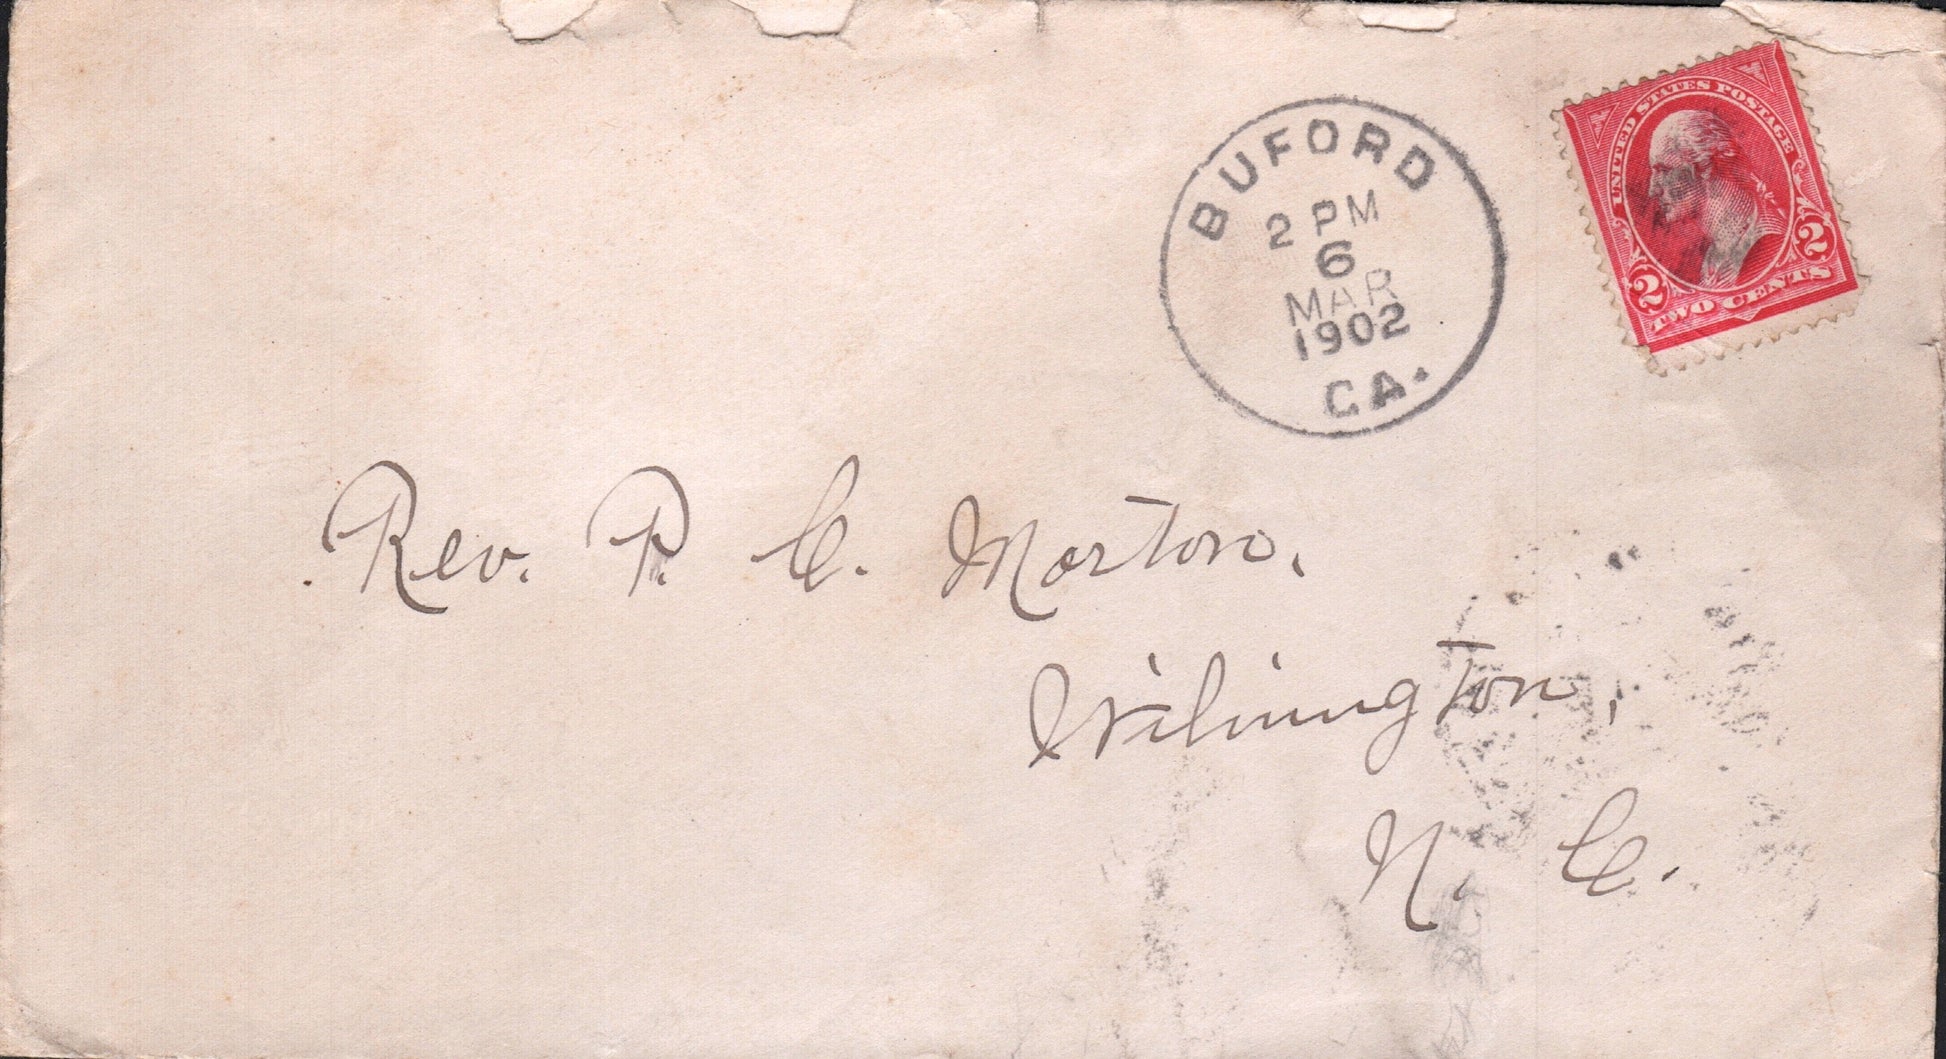 BUFORD
2 PM
6
MAR
1902
GA.
UNITED STATES POSTAGE
2 2
TWO CENTS
Rev. P. C. Morton,
Wilmington,
N. C.